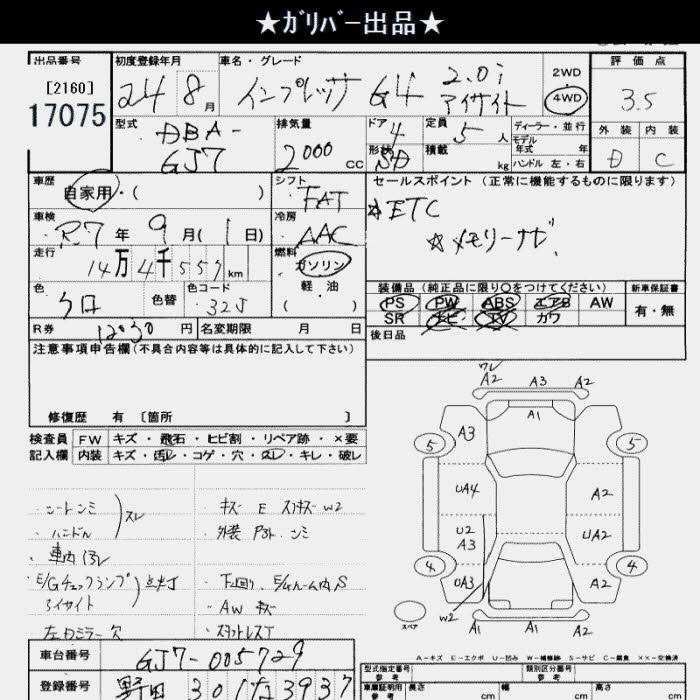 ★ｶﾞﾘﾊﾞｰ出品★
出品番号
[2160]
17075
初度登録年月
24 8月
車名・グレード
インプレッサ G4 2.0i
アイサイト
2WD
4WD
評価点
3.5
外装 内装
D C
型式
DBA-
GJ7
排気量
2000 CC
ドア
4
形状
SD
定員
5 人
積載
kg
ディーラー・並行
モデル年式 年
ハンドル 左・右
車歴
自家用・( )
シフト
FAT
セールスポイント (正常に機能するものに限ります)
☆ETC
☆メモリーナビ.
車検
R7年 9月( 1日)
冷房
AAC
走行
14万4千557km
燃料
ガソリン
軽・油
( )
色
クロ
色替
色コード
32J
装備品 (純正品に限り○をつけてください)
PS PW ABS エアB AW
SR ナビ TV カワ
新車保証書
有・無
R券 12030円
名変期限 月 日
後日品
注意事項申告欄 (不具合内容等は具体的に記入して下さい)
修復歴 有 〔箇所 〕
検査員記入欄
FW キズ・飛石・ヒビ割・リペア跡・×要
内装 キズ・汚レ・コゲ・穴・スレ・キレ・破レ
・ハンドル スレ
・車内汚レ
・E/Gチェックランプ
アイサイト 点灯
・左ドアミラー欠
・キズ E W2
・下回り、E/Gルーム内S
・AW キズ
・スタッドレスT
ワレ
A2 A3 A2
A1
A3
5 5
UA4 A2
U2 UA2
A3
4 4
UA3 A2
W2 A1 A1 A2
スペア
A-キズ E-エクボ U-凹み W-補修跡 S-サビ C-腐食 ××-交換済
車台番号
GJ7-005729
登録番号
野田 301 な 3937
型式指定番号
参考
類別区分番号
参考
車庫証明用
参考
長さ cm
幅 cm
高さ cm